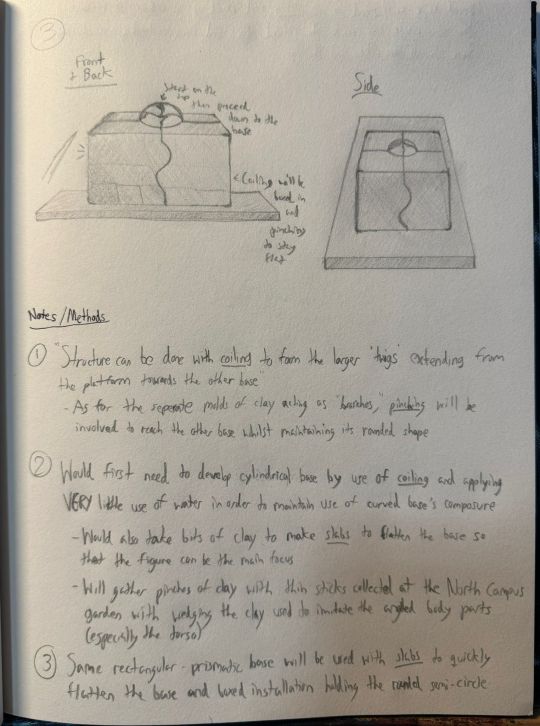 3
Front
+ Back
Start on the
top
then proceed
down to the
base
Side
Coiling will be
based in
and
pinching
to stay
flat
Notes/Methods
1 "Structure can be done with coiling to form the larger 'twigs' extending from
the platform towards the other base"
- As for the seperate molds of clay acting as "branches," pinching will be
involved to reach the other base whilst maintaining its rounded shape
2 Would first need to develop cylindrical base by use of coiling and applying
VERY little use of water in order to maintain use of curved base's composure
- Would also take bits of clay to make slabs to flatten the base so
that the figure can be the main focus
- Will gather pinches of clay with thin sticks collected at the North Campus
garden with wedging the clay used to imitate the angled body parts
(especially the torso)
3 Same rectangular-prismatic base will be used with slabs to quickly
flatten the base and boxed installation holding the semi-circle